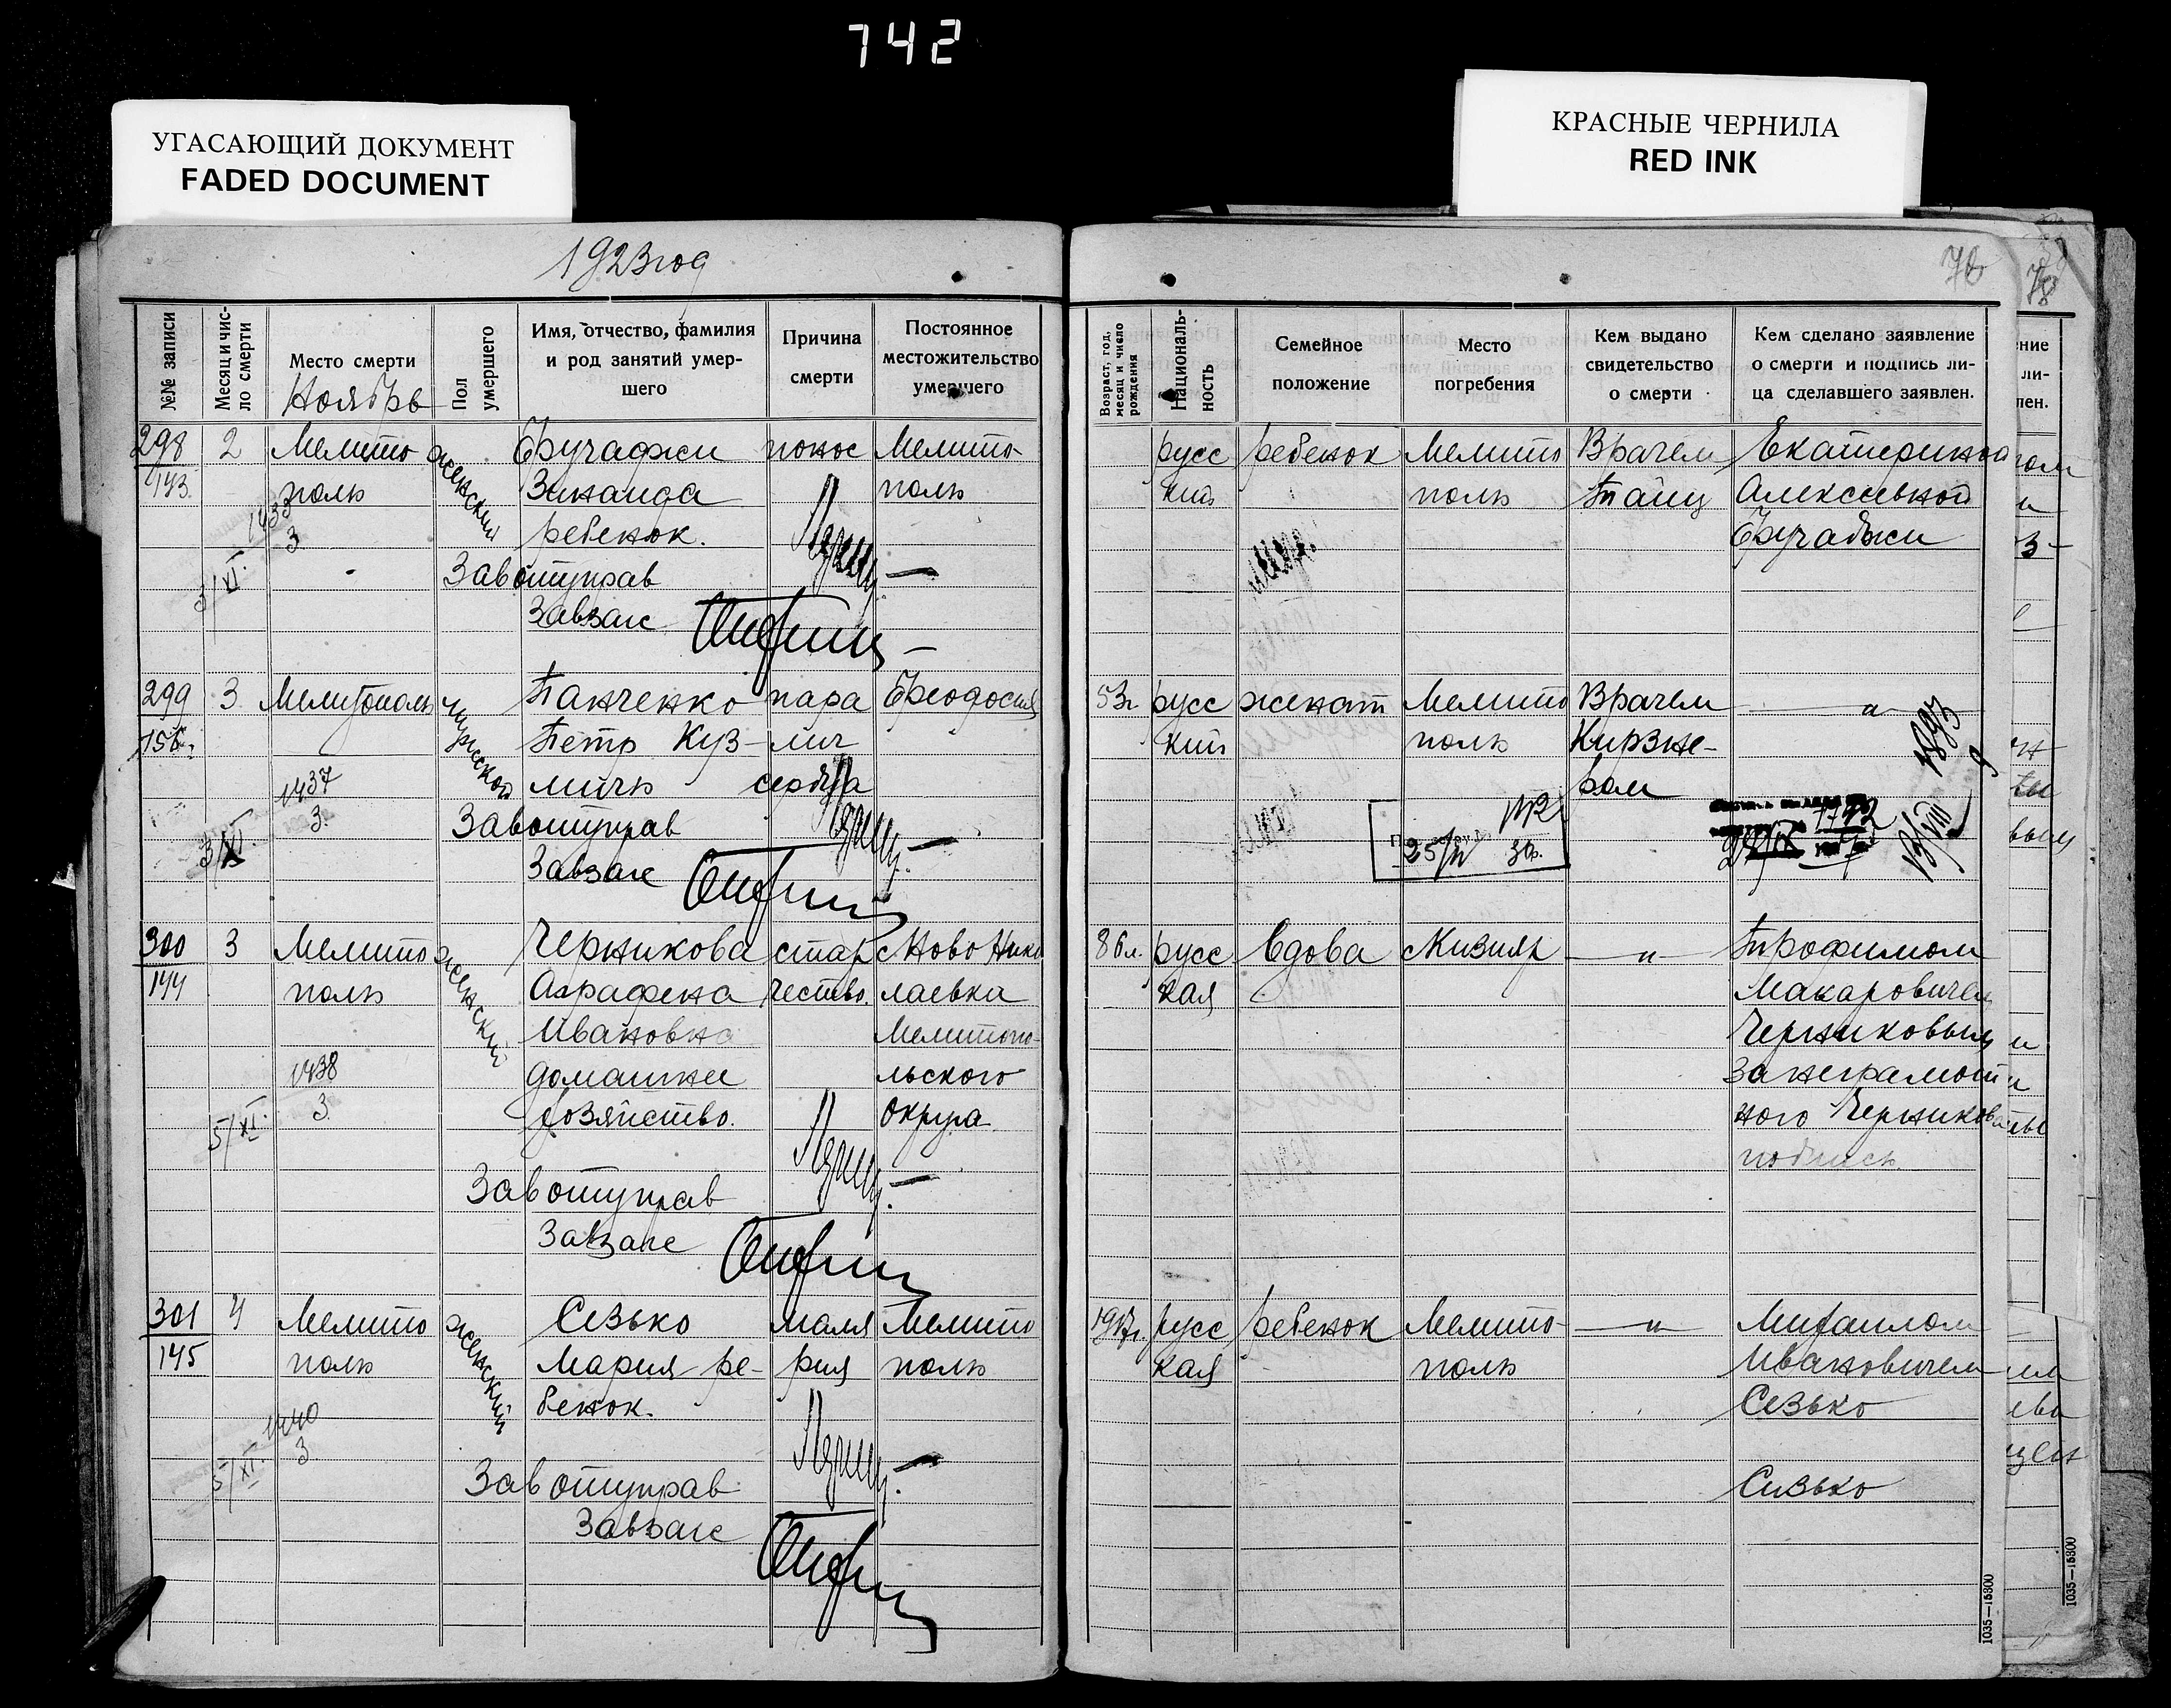 742
УГАСАЮЩИЙ ДОКУМЕНТ
FADED DOCUMENT
КРАСНЫЕ ЧЕРНИЛА
RED INK
1923 год
№№ записи
Месяц и чис-
ло смерти
Место смерти
Ноябрь
Пол
умершего
Имя, отчество, фамилия
и род занятий умер-
шего
Причина
смерти
Постоянное
местожительство
умершего
298
143
2
Мелито
поль
женский
Зинаида
ребенок.
понос
Мелито-
поль
1433
3
3/XI.
Завотуправ
Завзагс
299
156
3
Мелитополь
мужской
Панченко
Петр Куз-
мичь
пара
лич
сердца
Феодосия
1437
3.
3/XI.
Завотуправ
Завзагс
300
144
3
Мелито
поль
женский
Черникова
Аграфена
Ивановна
домашнее
хозяйство.
стар
чество.
с Ново Нико
лаевка
Мелитопо-
льского
округа
1438
3.
5/XI.
Завотуправ
Завзагс
301
145
4
Мелито
поль
женский
Сезько
Мария ре-
бенок.
маля
рия
Мелито
поль
1440
3.
5/XI.
Завотуправ
Завзагс
78
Возраст, год,
месяц и число
рождения
Националь-
ность
Семейное
положение
Место
погребения
Кем выдано
свидетельство
о смерти
Кем сделано заявление
о смерти и подпись ли-
ца сделавшего заявлен.
русс
кий
ребенок
Мелито
поль
Врачем
Танц
Екатериной
Алексеевной
53г.
русс
кий
женат
Мелито
поль
Врачем
Кирзне-
ром
— " —
1893
13/VIII
86л.
русс
кая
вдова
с Кизияр
— " —
Трофимом
Макаровичем
Черниковым
За неграмот
ного Черникова
подпись
1917г.
русс
кая
ребенок
Мелито-
поль
— " —
Михаилом
Ивановичем
Сезько
Сизько
1035—15300
ние
ли-
лен.
1035—15300